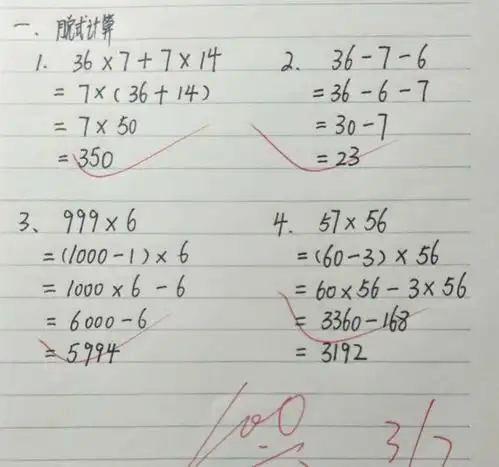 一、脱式计算
1. 36×7+7×14
=7×(36+14)
=7×50
=350
2. 36-7-6
=36-6-7
=30-7
=23
3、999×6
=(1000-1)×6
=1000×6-6
=6000-6
=5994
4. 57×56
=(60-3)×56
=60×56-3×56
=3360-168
=3192
100
3/7